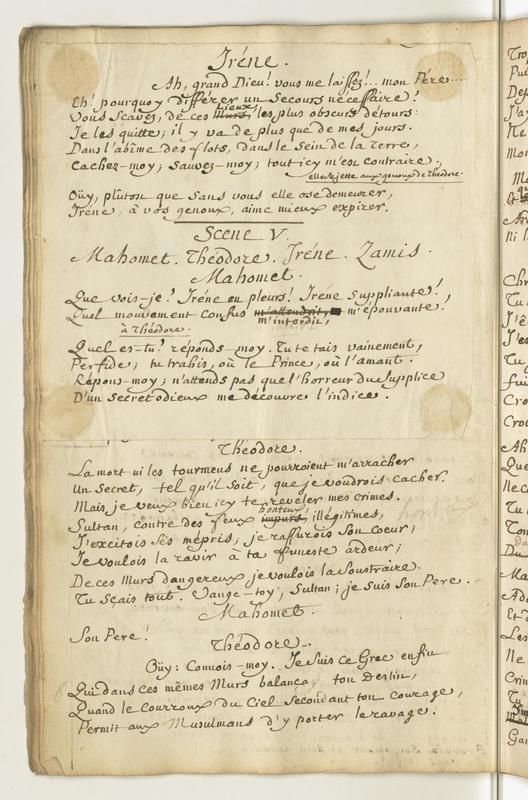 Iréne.
Ah, grand Dieu! vous me laissez!... mon Pére....
Eh! pourquoy différer un Secours nécessaire!
Lieux
Vous Scavez, de ces Murs, les plus obscurs détours:
Je les quitte; il y va de plus que de mes jours.
Dans l'abîme des flots, dans le Sein de la Terre,
Cachez-moy; Sauvez-moy; tout icy m'est contraire.
elle se jette aux genoux de Théodore.
Oüy, plûton que Sans vous elle ose demeurer,
Iréne, à vos genoux, aime mieux expirer.
Scene V.
Mahomet. Théodore. Iréne. Zamis.
Mahomet.
Que vois-je! Iréne en pleurs! Iréne Suppliante!
Quel mouvement confus m'attendrit, m'épouvante!
m'interdit,
à Théodore.
Quel es-tu? réponds-moy. Tu te tais vainement,
Perfide; tu trahis, où le Prince, où l'amant.
Répons-moy; n'attends pas que l'horreur du Supplice
D'un Secret odieux me découvre l'indice.
Théodore.
La mort ni les tourmens ne pourroient m'arracher
Un Secret, tel qu'il Soit, que je voudrois cacher.
Mais je veux bien icy te révéler mes crimes.
honteux,
Sultan, contre des feux impurs, illégitimes,
J'excitois Ses mépris; je rassurois Son Coeur;
Je voulois la ravir à ta funeste ardeur;
De ces Murs dangereux je voulois la Soustraire.
Tu Sçais tout. Vange-toy, Sultan; je Suis Son Pere.
Mahomet.
Son Pere!
Théodore.
Oüy: Connois-moy. Je Suis ce Grec enfin
Qui dans ces mêmes Murs balança ton Destin,
Quand le Courroux du Ciel Secondant ton Courage,
Permit aux Musulmans d'y porter le ravage.